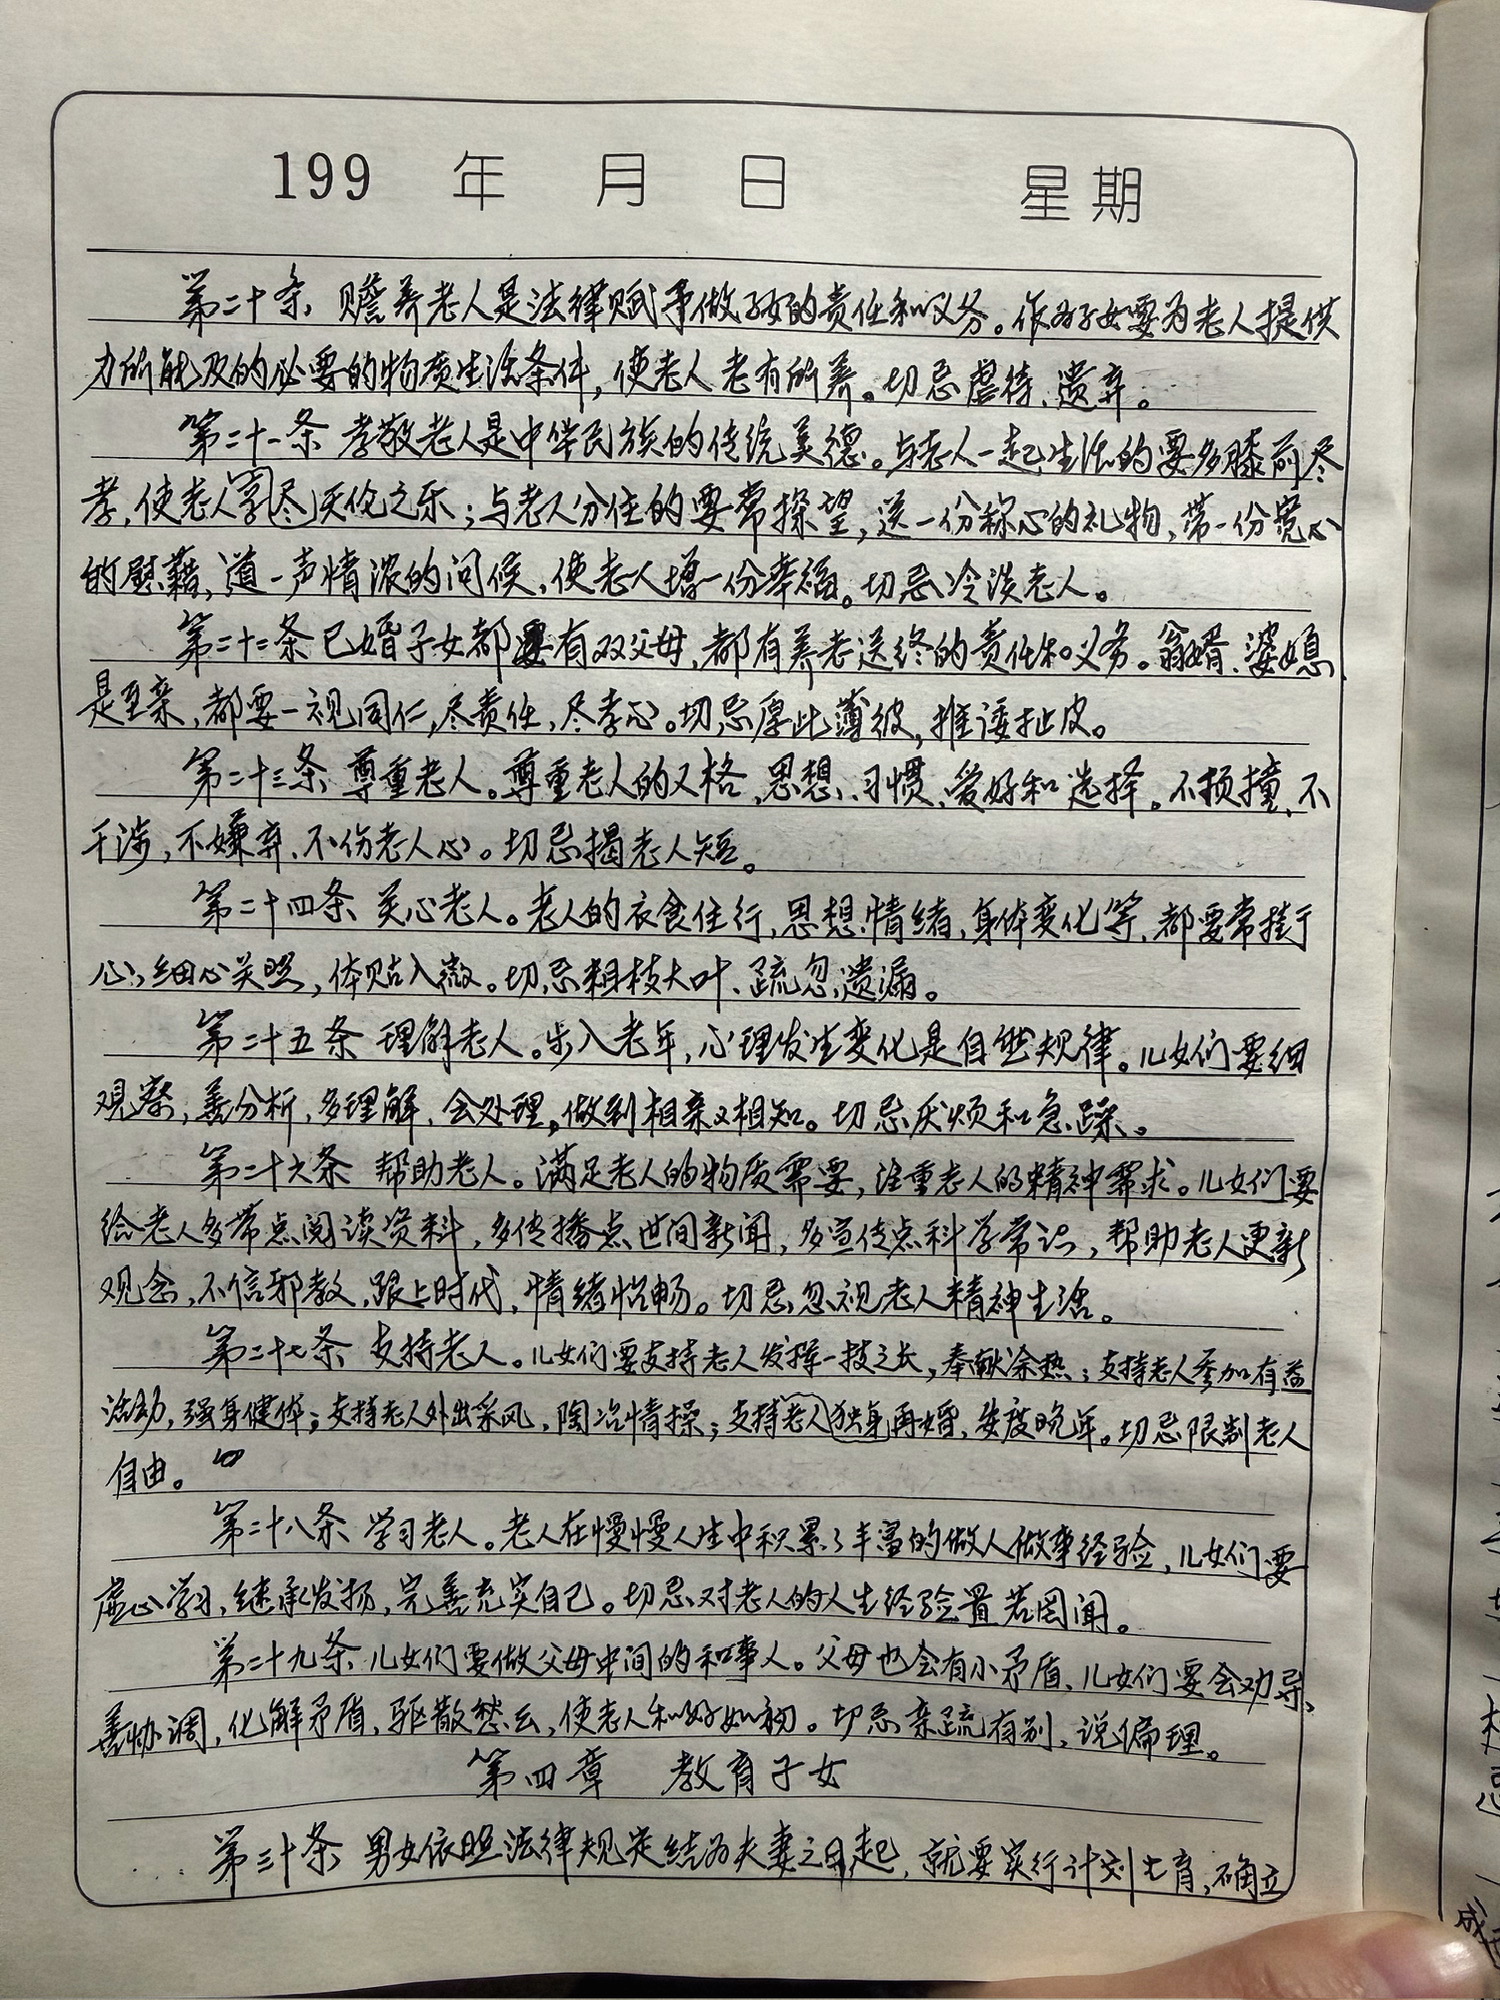 199 年 月 日 星期
第二十条 赡养老人是法律赋予做子女的责任和义务。作为子女要为老人提供
力所能及的必要的物质生活条件，使老人老有所养。切忌虐待、遗弃。
第二十一条 孝敬老人是中华民族的传统美德。与老人一起生活的要多膝前尽
孝，使老人享尽天伦之乐；与老人分住的要常探望，送一份称心的礼物，带一份宽心
的慰藉，道一声情浓的问候，使老人增一份幸福。切忌冷淡老人。
第二十二条 已婚子女都要有双父母，都有养老送终的责任和义务。翁婿、婆媳
是至亲，都要一视同仁，尽责任，尽孝心。切忌厚此薄彼，推诿扯皮。
第二十三条 尊重老人。尊重老人的人格、思想、习惯、爱好和选择。不顶撞、不
干涉，不嫌弃、不伤老人心。切忌揭老人短。
第二十四条 关心老人。老人的衣食住行，思想情绪，身体变化等，都要常挂于
心，细心关照，体贴入微。切忌粗枝大叶、疏忽遗漏。
第二十五条 理解老人。步入老年，心理发生变化是自然规律。儿女们要细
观察，善分析，多理解，会处理，做到相亲又相知。切忌厌烦和急躁。
第二十六条 帮助老人。满足老人的物质需要，注重老人的精神需求。儿女们要
给老人多带点阅读资料，多传播点世间新闻，多宣传点科学常识，帮助老人更新
观念，不信邪教，跟上时代，情绪恺畅。切忌忽视老人精神生活。
第二十七条 支持老人。儿女们要支持老人发挥一技之长，奉献余热；支持老人参加有益
活动，强身健体；支持老人外出采风，陶冶情操；支持老人独身再婚，安度晚年。切忌限制老人
自由。
第二十八条 学习老人。老人在慢慢人生中积累了丰富的做人做事经验，儿女们要
虚心学习，继承发扬，完善充实自己。切忌对老人的人生经验置若罔闻。
第二十九条 儿女们要做父母中间的和事人。父母也会有小矛盾，儿女们要会劝导、
善协调，化解矛盾，驱散愁云，使老人和好如初。切忌亲疏有别，说偏理。
第四章 教育子女
第三十条 男女依照法律规定结为夫妻之日起，就要实行计划生育，确立